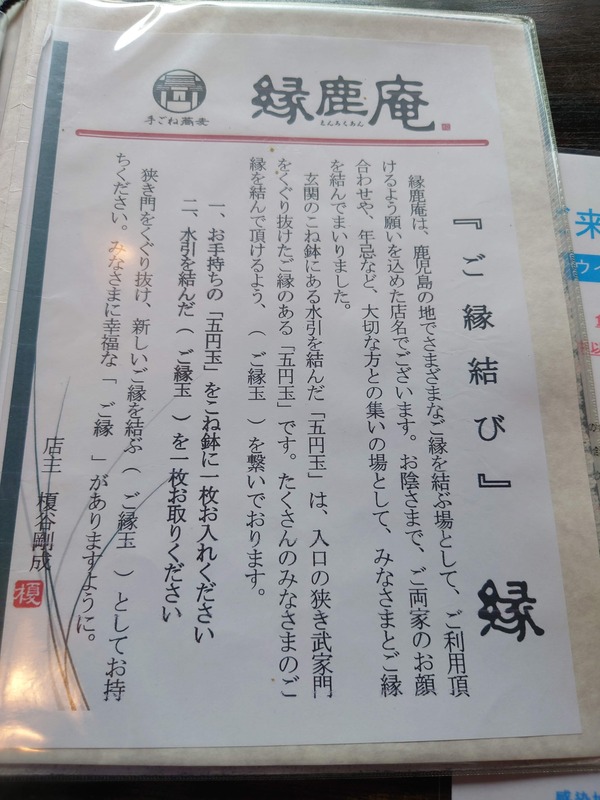 手ごね蕎麦
縁鹿庵
えんろくあん
『ご縁結び』
縁
縁鹿庵は、鹿児島の地でさまざまなご縁を結ぶ場として、ご利用頂
けるよう願いを込めた店名でございます。お陰さまで、ご両家のお顔
合わせや、年忌など、大切な方との集いの場として、みなさまとご縁
を結んでまいりました。
玄関のこね鉢にある水引を結んだ「五円玉」は、入口の狭き武家門
をくぐり抜けたご縁のある「五円玉」です。たくさんのみなさまのご
縁を結んで頂けるよう、（ご縁玉）を繋いでおります。
一、お手持ちの「五円玉」をこね鉢に一枚お入れください
二、水引を結んだ（ご縁玉）を一枚お取りください
狭き門をくぐり抜け、新しいご縁を結ぶ（ご縁玉）としてお持
ちください。みなさまに幸福な「ご縁」がありますように。
店主 榎谷剛成
榎
来
ウイ
感染